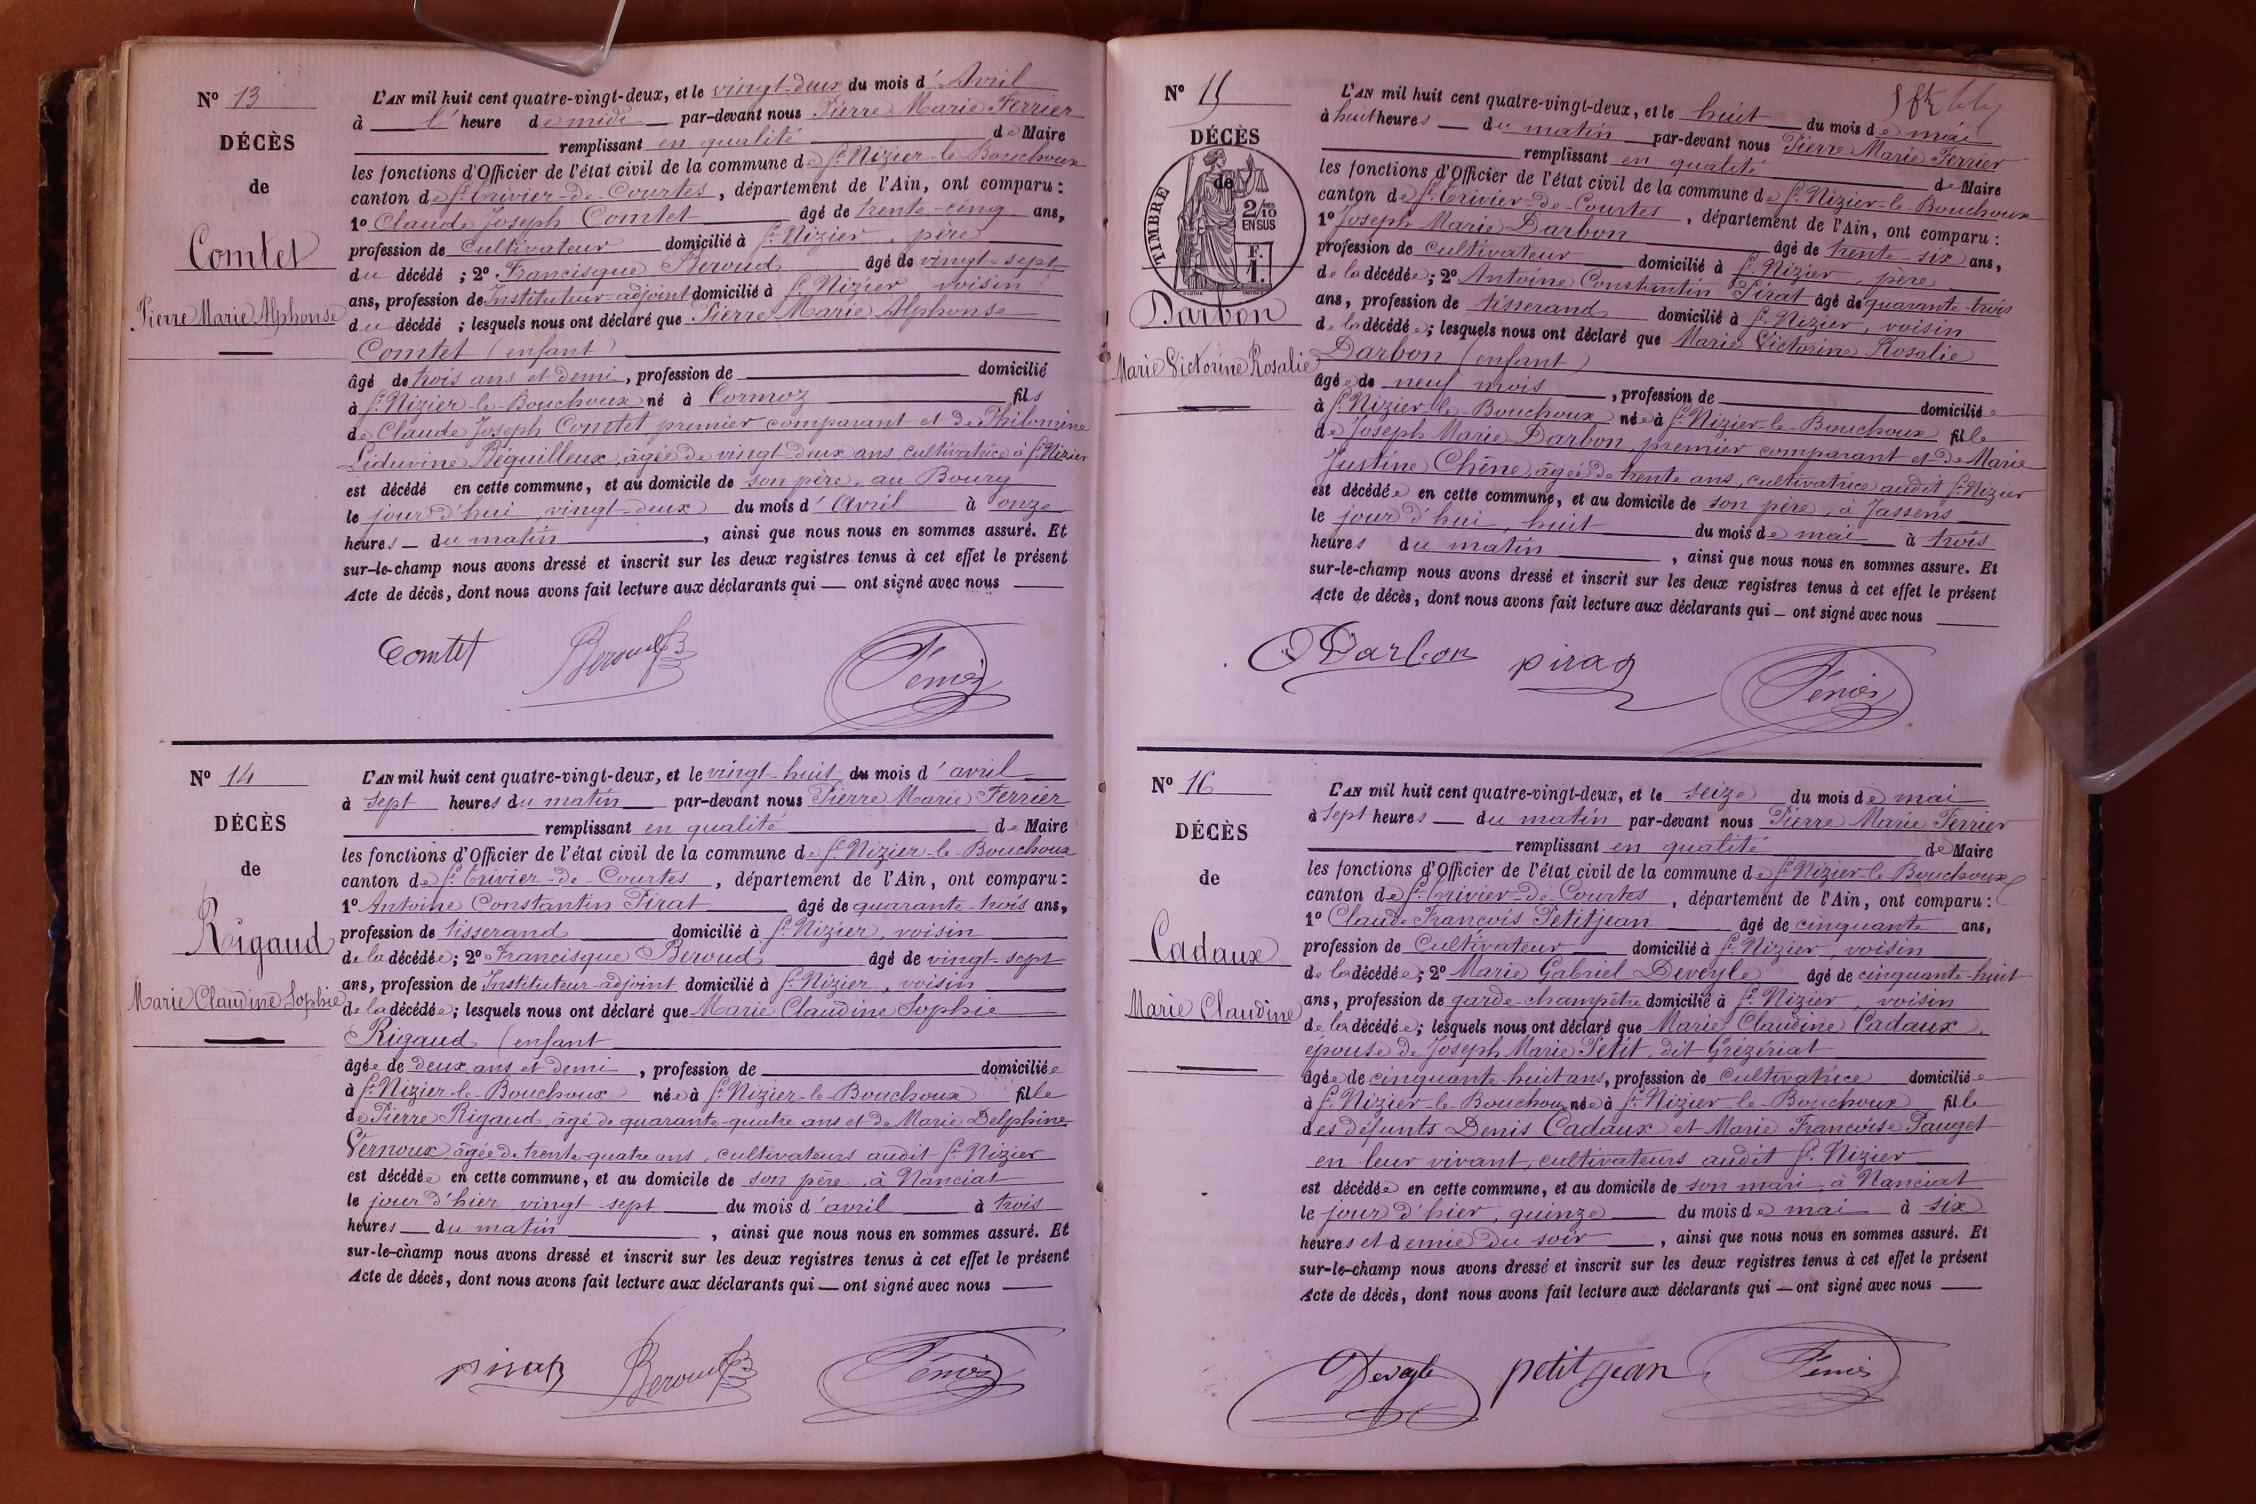 N° 13
DÉCÈS
de
Comtet
Pierre Marie Alphonse
L'AN mil huit cent quatre-vingt-deux, et le vingt-deux du mois d'Avril
à l'heure de midi par-devant nous Pierre Marie Ferrier
remplissant en qualité de Maire
les fonctions d'Officier de l'état civil de la commune de St Nizier-le-Bouchoux
canton de St Trivier-de-Courtes, département de l'Ain, ont comparu :
1° Claude Joseph Comtet âgé de trente-cinq ans,
profession de Cultivateur domicilié à St Nizier, père
du décédé ; 2° Francisque Beroud âgé de vingt-sept
ans, profession de Instituteur-adjoint domicilié à St Nizier voisin
du décédé ; lesquels nous ont déclaré que Pierre Marie Alphonse
Comtet (enfant)
âgé de trois ans et demi, profession de domicilié
à St Nizier-le-Bouchoux né à Cormoz fils
de Claude Joseph Comtet premier comparant et de Philomène
Liduvine Péguilleux, âgée de vingt-deux ans, cultivatrice à St Nizier
est décédé en cette commune, et au domicile de son père, au Bourg
le jour d'hui vingt-deux du mois d'Avril à onze
heures du matin, ainsi que nous nous en sommes assuré. Et
sur-le-champ nous avons dressé et inscrit sur les deux registres tenus à cet effet le présent
Acte de décès, dont nous avons fait lecture aux déclarants qui — ont signé avec nous
Comtet Beroud
N° 14
DÉCÈS
de
Rigaud
Marie Claudine Sophie
L'AN mil huit cent quatre-vingt-deux, et le vingt-huit du mois d'avril
à sept heures du matin par-devant nous Pierre Marie Ferrier
remplissant en qualité de Maire
les fonctions d'Officier de l'état civil de la commune de St Nizier-le-Bouchoux
canton de St Trivier-de-Courtes, département de l'Ain, ont comparu :
1° Antoine Constantin Pirat âgé de quarante-trois ans,
profession de tisserand domicilié à St Nizier, voisin
de la décédée ; 2° Francisque Beroud âgé de vingt-sept
ans, profession de Instituteur-adjoint domicilié à St Nizier, voisin
de la décédée ; lesquels nous ont déclaré que Marie Claudine Sophie
Rigaud (enfant
âgée de deux ans et demi, profession de domiciliée
à St Nizier-le-Bouchoux née à St Nizier-le-Bouchoux fille
de Pierre Rigaud âgé de quarante-quatre ans et de Marie Delphine
Vernoux âgée de trente-quatre ans, cultivateurs audit St Nizier
est décédée en cette commune, et au domicile de son père, à Nanciat
le jour d'hier vingt-sept du mois d'avril à trois
heures du matin, ainsi que nous nous en sommes assuré. Et
sur-le-champ nous avons dressé et inscrit sur les deux registres tenus à cet effet le présent
Acte de décès, dont nous avons fait lecture aux déclarants qui — ont signé avec nous
pirat Beroud
N° 15
DÉCÈS
de
TIMBRE
2/10
EN SUS
F.
1.
Darbon
Marie Victorine Rosalie
L'AN mil huit cent quatre-vingt-deux, et le huit du mois de mai
à huit heures du matin par-devant nous Pierre Marie Ferrier
remplissant en qualité de Maire
les fonctions d'Officier de l'état civil de la commune de St Nizier-le-Bouchoux
canton de St Trivier-de-Courtes, département de l'Ain, ont comparu :
1° Joseph Marie Darbon âgé de trente-six ans,
profession de cultivateur domicilié à St Nizier, père
de la décédée ; 2° Antoine Constantin Pirat âgé de quarante-trois
ans, profession de tisserand domicilié à St Nizier, voisin
de la décédée ; lesquels nous ont déclaré que Marie Victorine Rosalie
Darbon (enfant)
âgée de neuf mois, profession de domiciliée
à St Nizier-le-Bouchoux née à St Nizier-le-Bouchoux fille
de Joseph Marie Darbon, premier comparant et de Marie
Justine Chêne, âgée de trente ans, cultivatrice audit St Nizier
est décédée en cette commune, et au domicile de son père, à Jassens
le jour d'hui, huit du mois de mai à trois
heures du matin, ainsi que nous nous en sommes assure. Et
sur-le-champ nous avons dressé et inscrit sur les deux registres tenus à cet effet le présent
Acte de décès, dont nous avons fait lecture aux déclarants qui — ont signé avec nous
Darbon pirat
N° 16
DÉCÈS
de
Cadaux
Marie Claudine
L'AN mil huit cent quatre-vingt-deux, et le seize du mois de mai
à sept heures du matin par-devant nous Pierre Marie Ferrier
remplissant en qualité de Maire
les fonctions d'Officier de l'état civil de la commune de St Nizier-le-Bouchoux
canton de St Trivier-de-Courtes, département de l'Ain, ont comparu :
1° Claude François Petitjean âgé de cinquante ans,
profession de Cultivateur domicilié à St Nizier, voisin
de la décédée ; 2° Marie Gabriel Deveyle âgé de cinquante-huit
ans, profession de garde-champêtre domicilié à St Nizier, voisin
de la décédée ; lesquels nous ont déclaré que Marie Claudine Cadaux,
épouse de Joseph Marie Petit, dit Grézériat
âgée de cinquante-huit ans, profession de Cultivatrice domiciliée
à St Nizier-le-Bouchoux née à St Nizier-le-Bouchoux fille
des défunts Denis Cadaux et Marie Françoise Pauget
en leur vivant, cultivateurs audit St Nizier
est décédée en cette commune, et au domicile de son mari, à Nanciat
le jour d'hier, quinze du mois de mai à six
heures et demie du soir, ainsi que nous nous en sommes assuré. Et
sur-le-champ nous avons dressé et inscrit sur les deux registres tenus à cet effet le présent
Acte de décès, dont nous avons fait lecture aux déclarants qui — ont signé avec nous
Deveyle petitjean